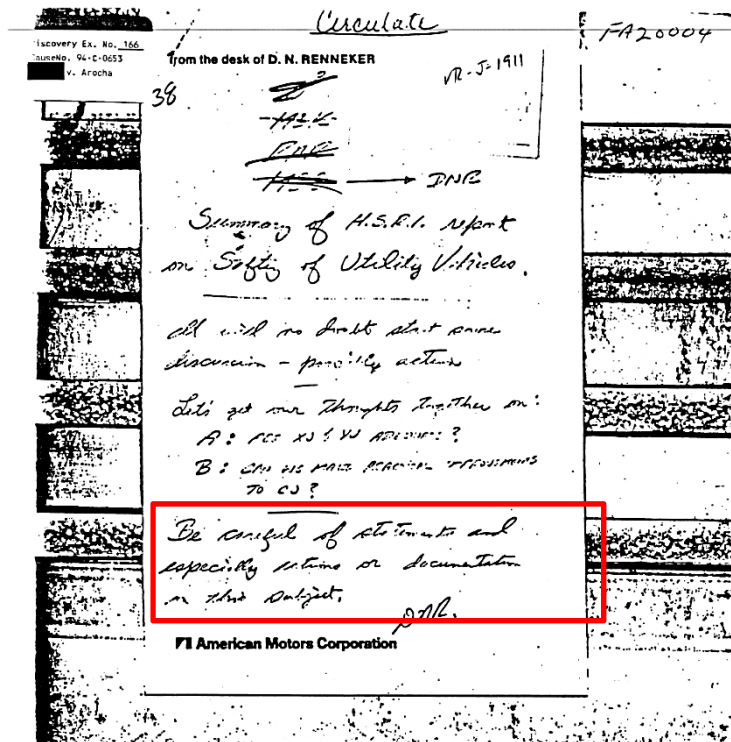 Circulate
FA20004
iscovery Ex. No. 166
auseNo. 94-C-0653
v. Arocha
from the desk of D. N. RENNEKER
VR-J-1911
38
DNR
Summary of H.S.R.I. report
on Safety of Utility Vehicles.
It will no doubt start some
discussion - possibly action
Let's get our thoughts together on:
A: XJ & YJ ADEQUATE?
B: CAN WE MAKE PRACTICAL IMPROVEMENTS
TO CJ?
Be careful of statements and
especially actions or documentation
on this subject.
DNR.
American Motors Corporation